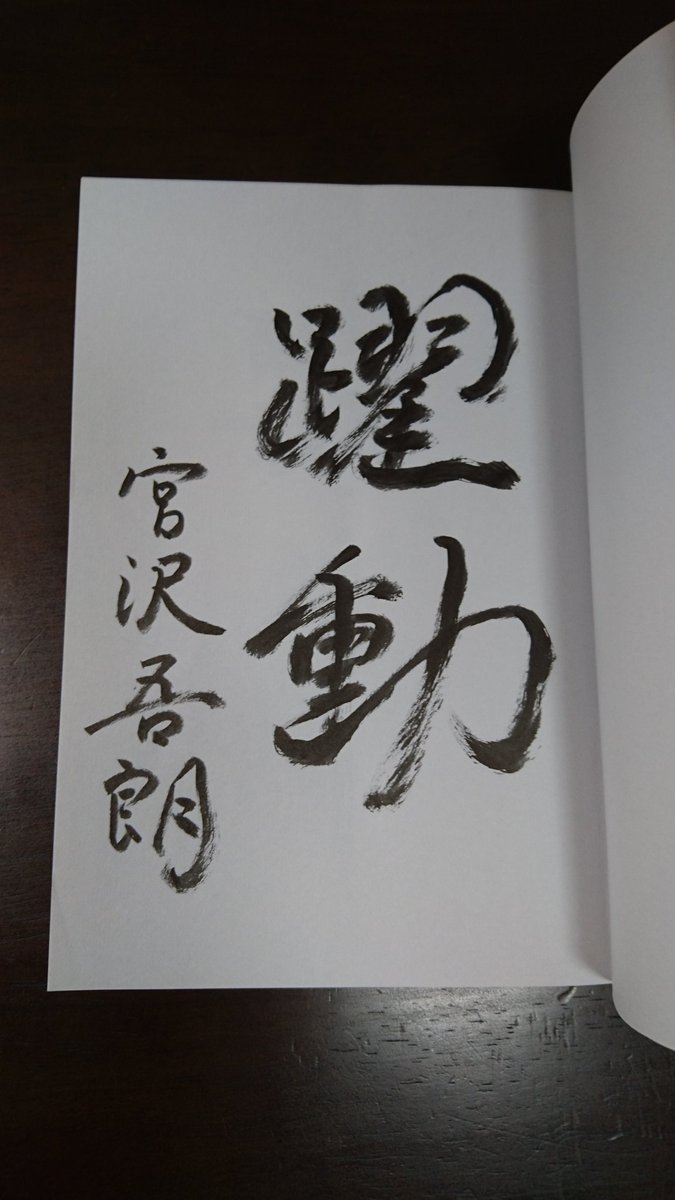 躍動
宮沢吾朗